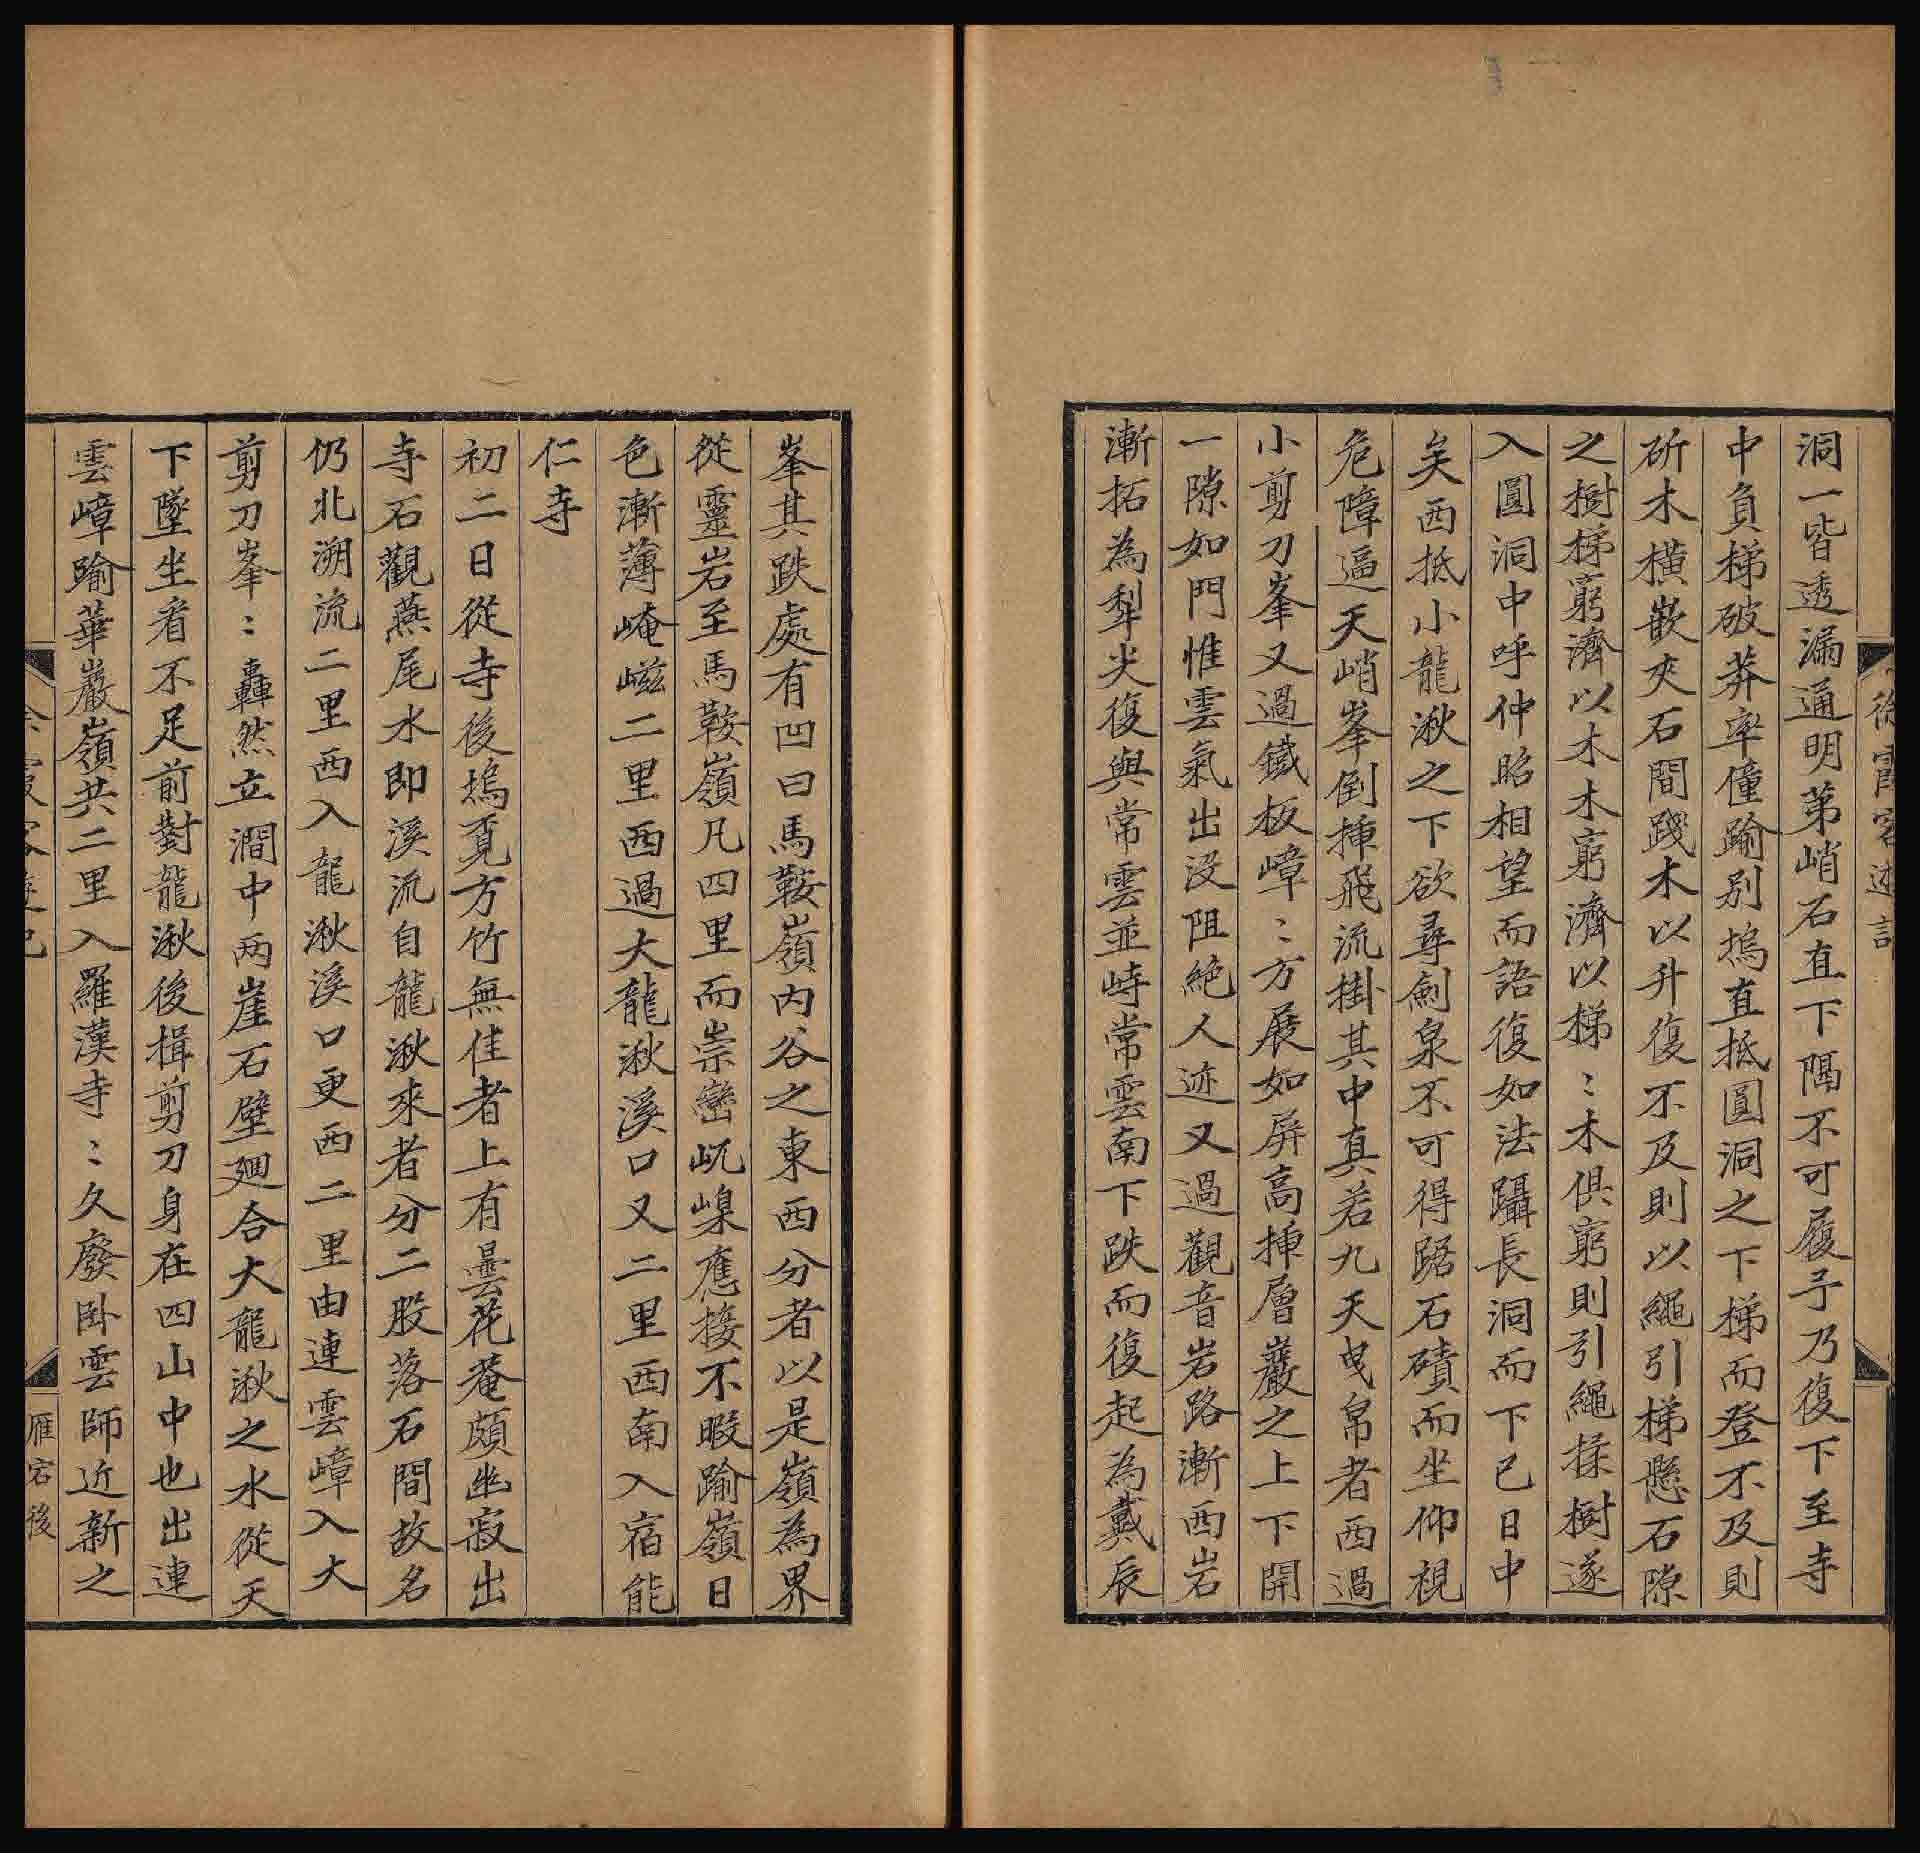 徐霞客遊記
洞一皆透漏通明第峭石直下隔不可履予乃復下至寺
中負梯破莽率僮踰别塢直抵圓洞之下梯而登不及則
斫木橫嵌夾石間踐木以升復不及則以繩引梯懸石隙
之樹梯窮濟以木木窮濟以梯〻木俱窮則引繩揉樹遂
入圓洞中呼仲昭相望而語復如法躡長洞而下已日中
矣西抵小龍湫之下欲尋劍泉不可得踞石磧而坐仰視
危障逼天峭峯倒揷飛流掛其中真若九天曳帛者西過
小剪刀峯又過鐵板嶂〻方展如屏高揷層巖之上下開
一隙如門惟雲氣出没阻絶人迹又過觀音岩路漸西岩
漸拓為犁尖復與常雲並峙常雲南下跌而復起為戴辰
峯其跌處有凹曰馬鞍嶺内谷之東西分者以是嶺為界
從靈岩至馬鞍嶺凡四里而崇巒屼嵲應接不暇踰嶺日
色漸薄崦嵫二里西過大龍湫溪口又二里西南入宿能
仁寺
初二日從寺後塢覓方竹無佳者上有曇花菴頗幽寂出
寺石觀燕尾水即溪流自龍湫來者分二股落石間故名
仍北溯流二里西入龍湫溪口更西二里由連雲嶂入大
剪刀峯〻轟然立澗中兩崖石壁廻合大龍湫之水從天
下墜坐看不足前對龍湫後揖剪刀身在四山中也出連
雲嶂踰華巖嶺共二里入羅漢寺〻久廢卧雲師近新之
徐霞客遊記
雁宕後